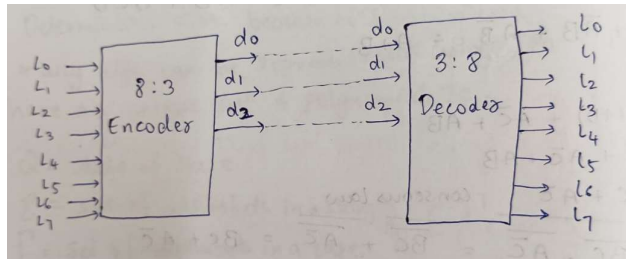 d0
d0
L0
L0
L1
L2
L3
L4
L5
L6
L7
8:3
Encoder
d1
d2
d1
d2
3:8
Decoder
L1
L2
L3
L4
L5
L6
L7